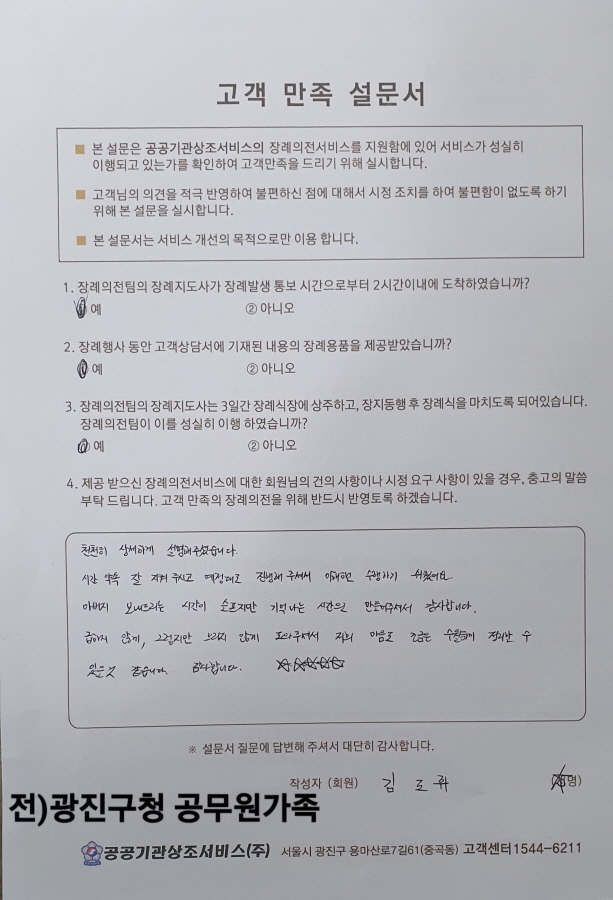 고객 만족 설문서
■ 본 설문은 공공기관상조서비스의 장례의전서비스를 지원함에 있어 서비스가 성실히
이행되고 있는가를 확인하여 고객만족을 드리기 위해 실시합니다.
■ 고객님의 의견을 적극 반영하여 불편하신 점에 대해서 시정 조치를 하여 불편함이 없도록 하기
위해 본 설문을 실시합니다.
■ 본 설문서는 서비스 개선의 목적으로만 이용 합니다.
1. 장례의전팀의 장례지도사가 장례발생 통보 시간으로부터 2시간이내에 도착하였습니까?
① 예 ② 아니오
2. 장례행사 동안 고객상담서에 기재된 내용의 장례용품을 제공받았습니까?
① 예 ② 아니오
3. 장례의전팀의 장례지도사는 3일간 장례식장에 상주하고, 장지동행 후 장례식을 마치도록 되어있습니다.
장례의전팀이 이를 성실히 이행 하였습니까?
① 예 ② 아니오
4. 제공 받으신 장례의전서비스에 대한 회원님의 건의 사항이나 시정 요구 사항이 있을 경우, 충고의 말씀
부탁 드립니다. 고객 만족의 장례의전을 위해 반드시 반영토록 하겠습니다.
천천히 상세하게 설명해주셨습니다.
시간 약속 잘 지켜 주시고 예정대로 진행해 주셔서 이해하고 수행하기 쉬웠어요.
아버지 보내드리는 시간이 슬프지만 기억나는 시간으로 만들어주셔서 감사합니다.
급하지 않게, 그렇지만 느리지 않게 도와주셔서 저희 마음도 조금은 수월하게 정리할 수
있은것 같습니다. 감사합니다. ☆☆☆☆☆
※ 설문서 질문에 답변해 주셔서 대단히 감사합니다.
작성자 (회원) 김 도 명)
전)광진구청 공무원가족
공공기관상조서비스(주) 서울시 광진구 용마산로7길61(중곡동) 고객센터1544-6211